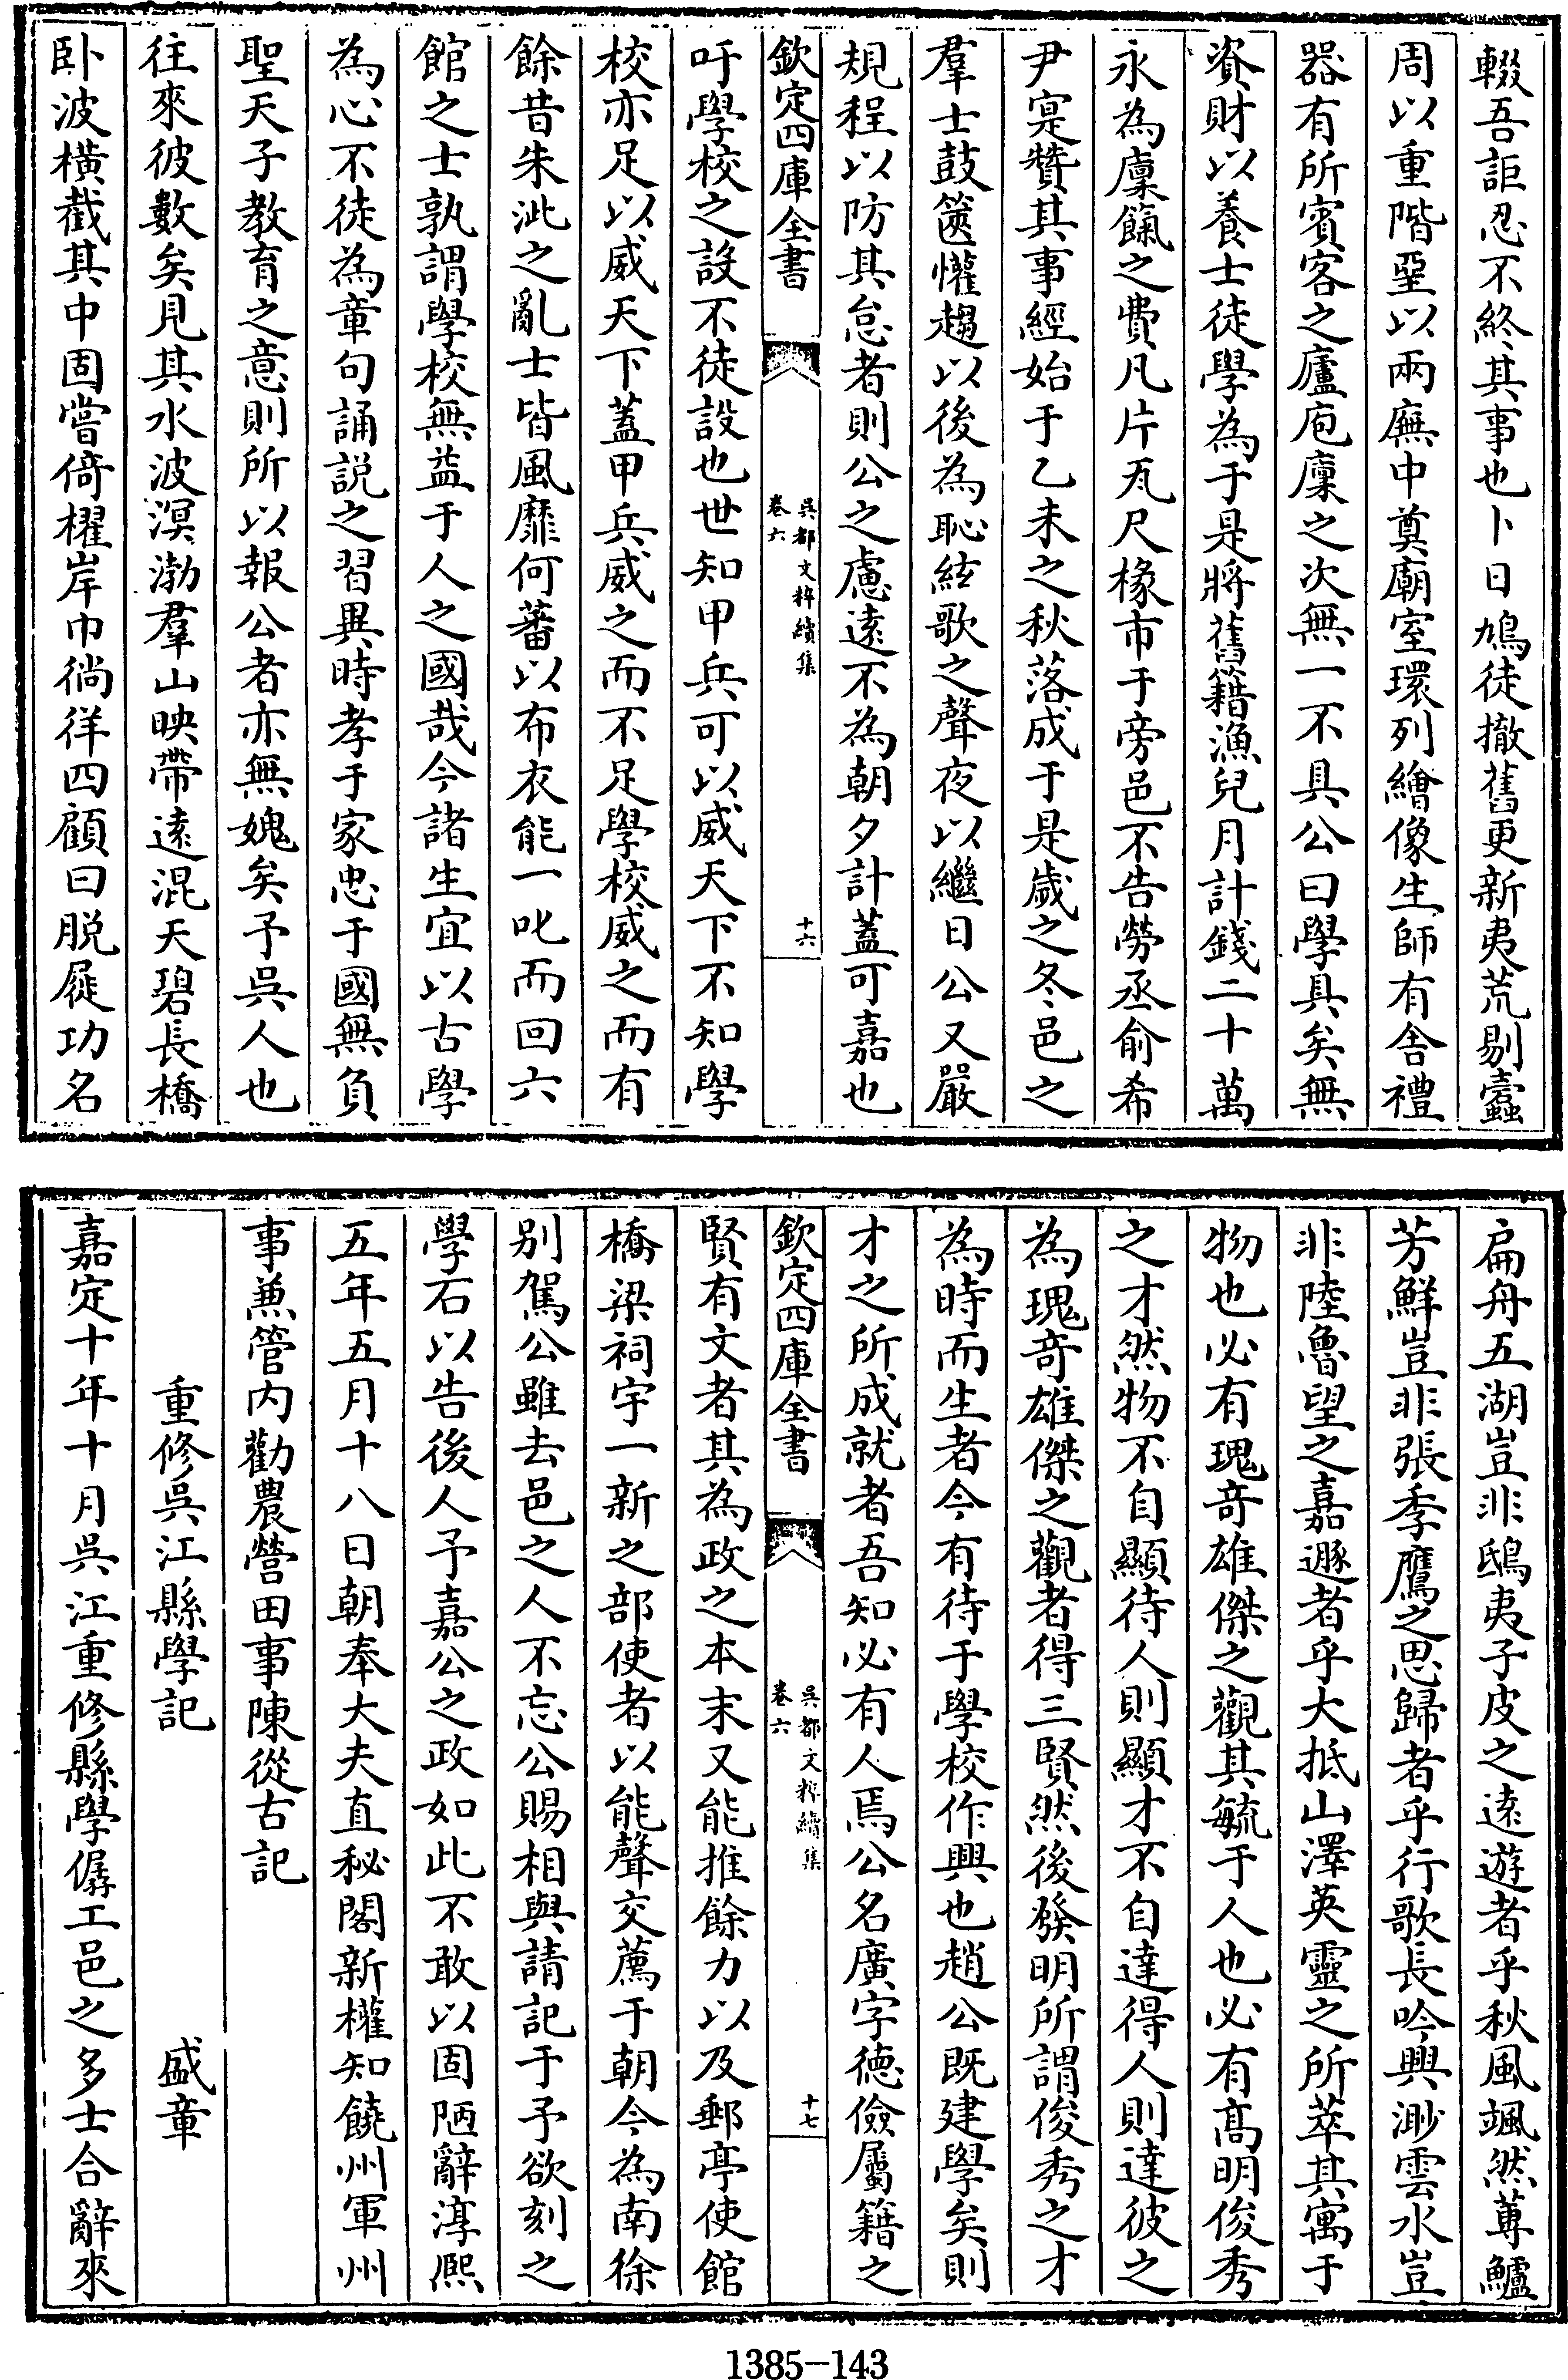 輟吾詎忍不終其事也卜日鳩徒撤舊更新夷荒剔蠹
周以重階堊以兩廡中奠廟室環列繪像生師有舍禮
器有所賓客之廬庖廩之次無一不具公曰學具矣無
資財以養士徒學為于是將舊籍漁兒月計錢二十萬
永為廩餼之費凡片瓦尺椽市于旁邑不告勞丞俞希
尹寔贊其事經始于乙未之秋落成于是歲之冬邑之
羣士鼓篋懽趨以後為恥絃歌之聲夜以繼日公又嚴
規程以防其怠者則公之慮遠不為朝夕計蓋可嘉也
欽定四庫全書 吳都文粹續集 卷六 十六
吁學校之設不徒設也世知甲兵可以威天下不知學
校亦足以威天下蓋甲兵威之而不足學校威之而有
餘昔朱泚之亂士皆風靡何蕃以布衣能一叱而回六
館之士孰謂學校無益于人之國哉今諸生宜以古學
為心不徒為章句誦説之習異時孝于家忠于國無負
聖天子教育之意則所以報公者亦無媿矣予吳人也
往來彼數矣見其水波溟渤羣山映帶遠混天碧長橋
卧波橫截其中固嘗倚櫂岸巾徜徉四顧曰脱屣功名
扁舟五湖豈非鴟夷子皮之遠遊者乎秋風颯然蓴鱸
芳鮮豈非張季鷹之思歸者乎行歌長吟興渺雲水豈
非陸魯望之嘉遯者乎大抵山澤英靈之所萃其寓于
物也必有瑰奇雄傑之觀其毓于人也必有髙明俊秀
之才然物不自顯待人則顯才不自達得人則達彼之
為瑰奇雄傑之觀者得三賢然後發明所謂俊秀之才
為時而生者今有待于學校作興也趙公既建學矣則
才之所成就者吾知必有人焉公名廣字德儉屬籍之
欽定四庫全書 吳都文粹續集 卷六 十七
賢有文者其為政之本末又能推餘力以及郵亭使館
橋梁祠宇一新之部使者以能聲交薦于朝今為南徐
别駕公雖去邑之人不忘公賜相與請記于予欲刻之
學石以告後人予嘉公之政如此不敢以固陋辭淳熙
五年五月十八日朝奉大夫直秘閣新權知饒州軍州
事兼管内勸農營田事陳從古記
重修吳江縣學記 盛章
嘉定十年十月吳江重修縣學僝工邑之多士合辭來
1385-143